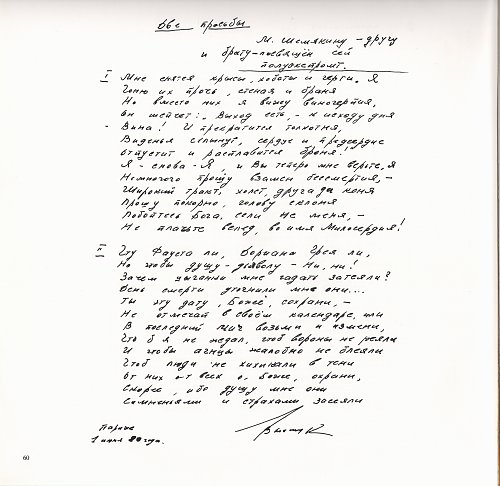 Две просьбы
М. Шемякину – другу
и брату – посвящён сей
полуэкспромт.
I Мне снятся крысы, хоботы и черти. Я
Гоню их прочь, стеная и браня
Но вместо них я вижу виночерпия,
Он шепчет: „Выход есть, – к исходу дня
– Вина! И прекратится толкотня,
Виденья схлынут, сердце и предсердие
Отпустит и расплавится броня!
Я – снова – Я и Вы теперь мне верьте, я
Немногого прошу взамен бессмертия, –
Широкий тракт, холст, друга да коня
Прошу покорно, голову склоня
Побойтесь Бога, если не меня, –
Не плачьте вслед, во имя Милосердия!
II Чту Фауста ли, Дориана Грея ли,
Но чтобы душу – дьяволу – Ни, ни!
Зачем цыганки мне гадать затеяли?
День смерти уточнили мне они...
Ты эту дату, Боже, сохрани, –
Не отмечай в своём календаре, или
В последний миг возьми и измени,
Чтоб я не ждал, чтоб вороны не реяли
И чтобы агнцы жалобно не блеяли
Чтоб люди не хихикали в тени
От них от всех о, Боже, охрани,
Скорее, ибо душу мне они
Сомненьями и страхами засеяли
Париж
1 июня 80 года.
60